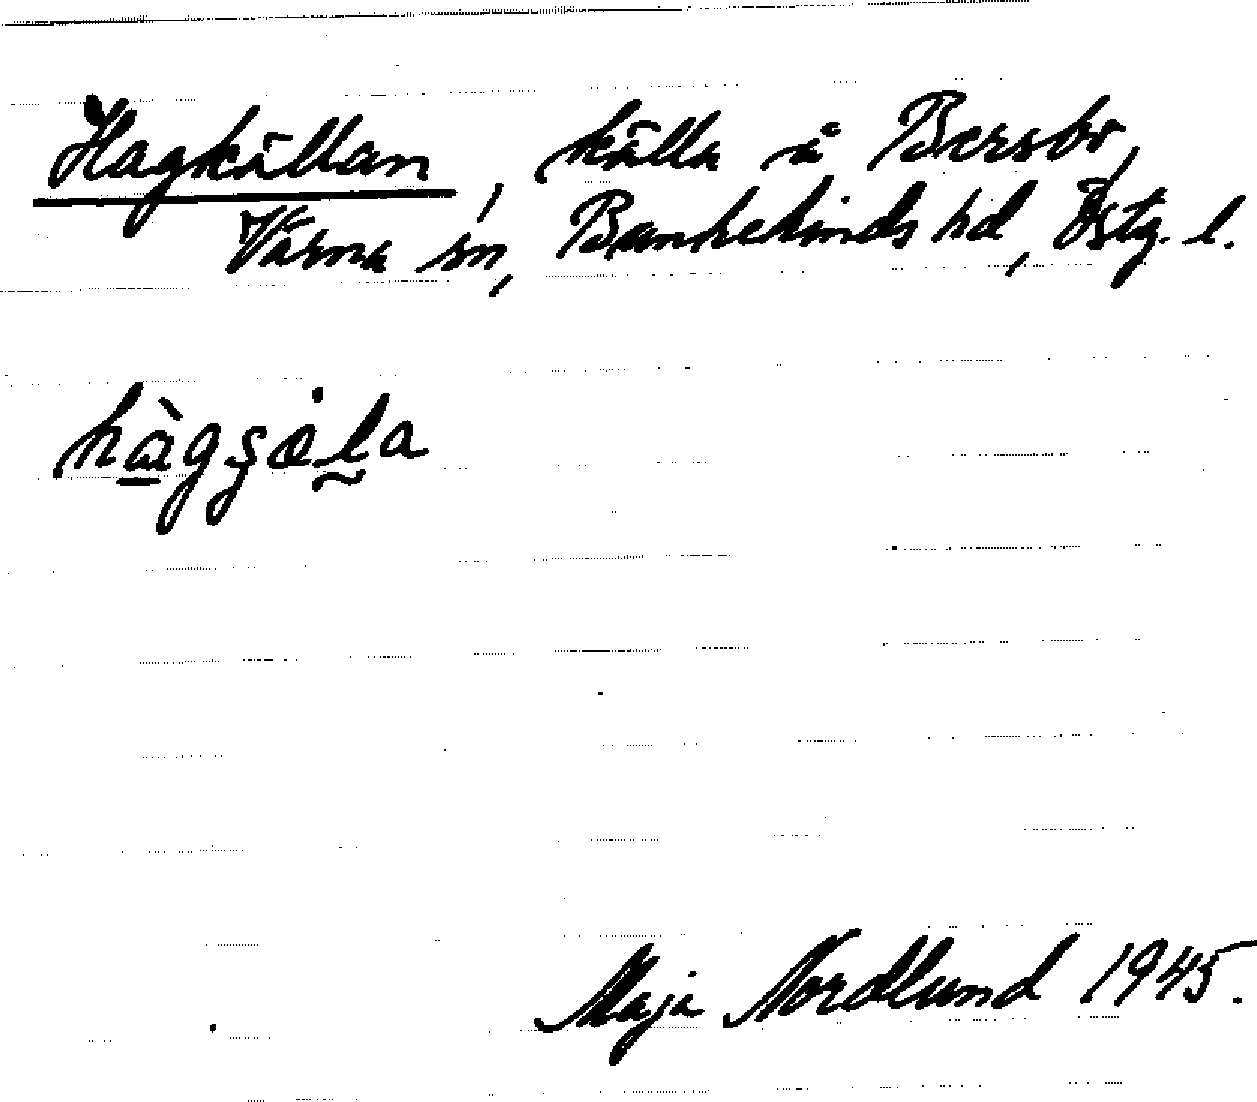 Hagkällan, källa å Bersbo,
Värna sn, Bankekinds hd, Östg. l.
hàgʂäla
Maja Nordlund 1945.